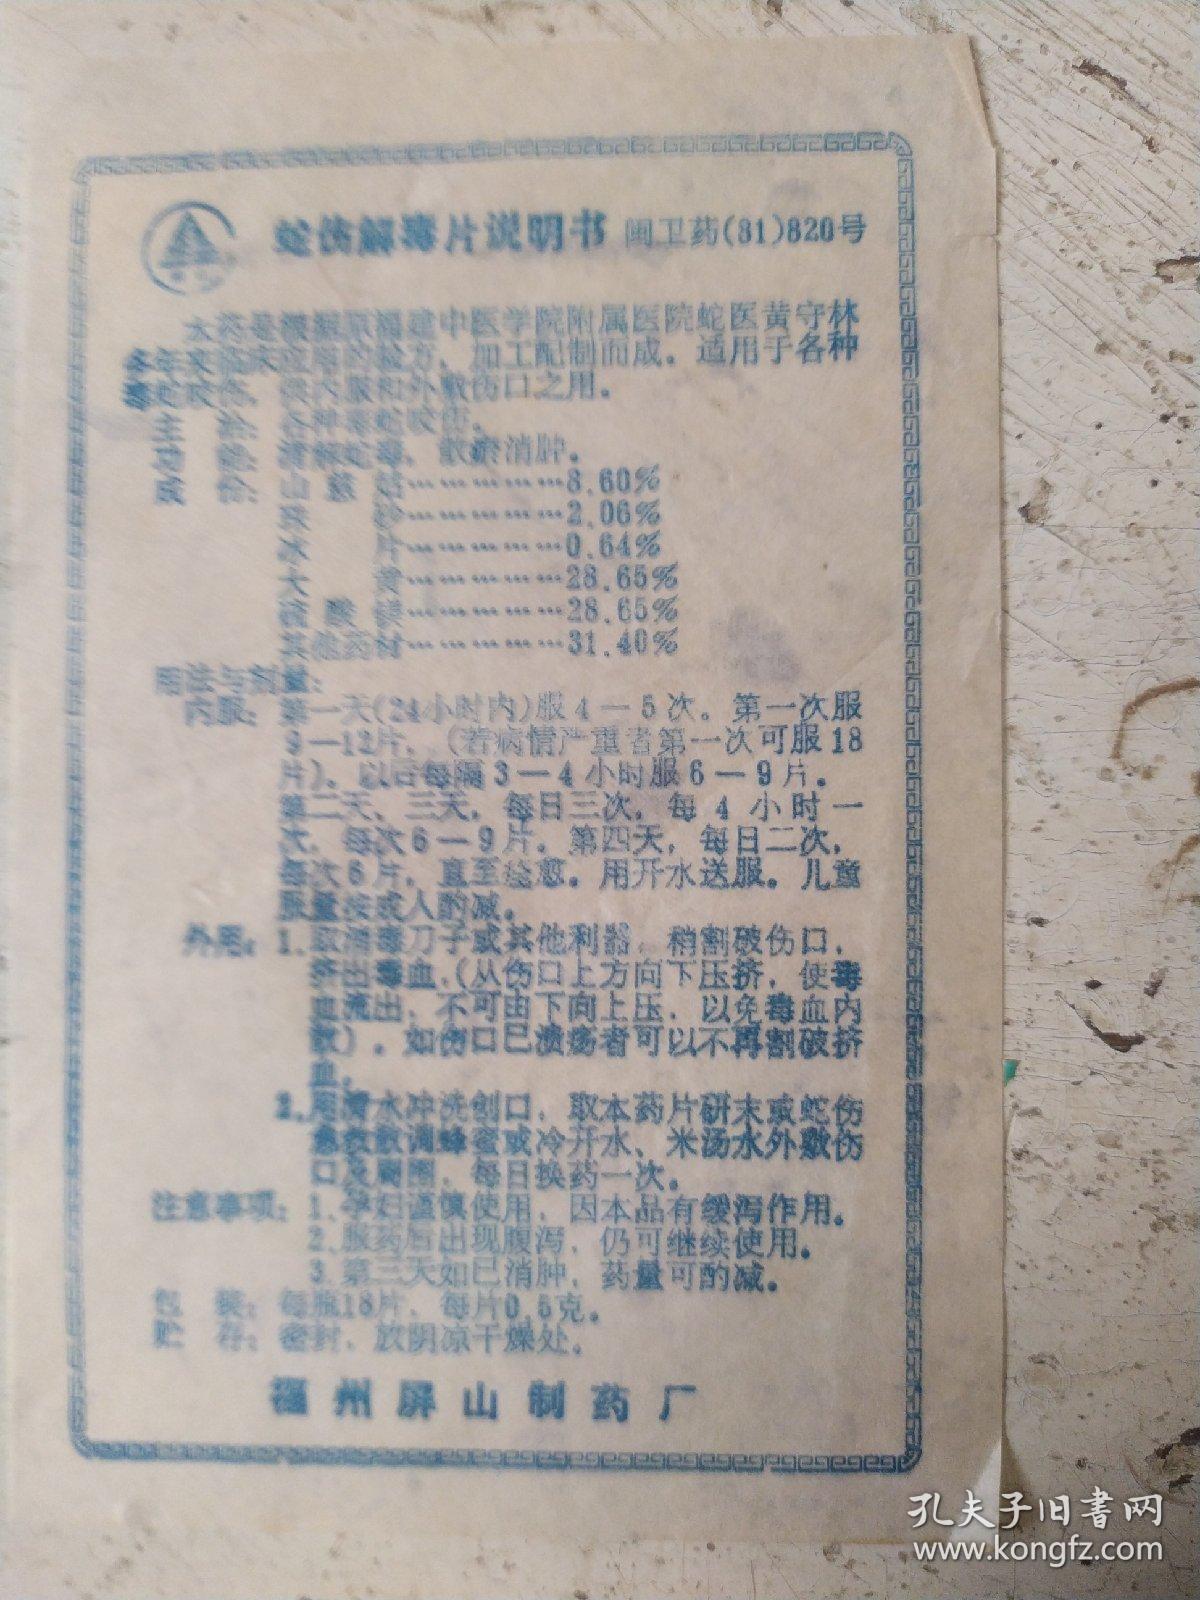 蛇伤解毒片说明书 闽卫药(81)820号
本药是根据原福建中医学院附属医院蛇医黄守林
多年来临床应用的验方，加工配制而成。适用于各种
毒蛇咬伤，供内服和外敷伤口之用。
主 治：各种毒蛇咬伤。
功 能：清解蛇毒，散瘀消肿。
成 份：山慈菇……………8.60%
珠 砂……………2.06%
冰 片……………0.64%
大 黄……………28.65%
硫酸镁……………28.65%
其他药材……………31.40%
用法与剂量：
内服：第一天(24小时内)服4—5次。第一次服
9—12片，(若病情严重者第一次可服18
片)。以后每隔3—4小时服6—9片。
第二天，三天，每日三次，每4小时一
次，每次6—9片。第四天，每日二次，
每次6片，直至痊愈。用开水送服。儿童
服量按成人酌减。
外用：1.取消毒刀子或其他利器，稍割破伤口，
挤出毒血，(从伤口上方向下压挤，使毒
血流出，不可由下向上压，以免毒血内
散)。如伤口已溃疡者可以不再割破挤
血。
2.用清水冲洗创口，取本药片研末或蛇伤
急救散调蜂蜜或冷开水、米汤水外敷伤
口及周围，每日换药一次。
注意事项：1.孕妇谨慎使用，因本品有缓泻作用。
2.服药后出现腹泻，仍可继续使用。
3.第三天如已消肿，药量可酌减。
包 装：每瓶18片，每片0.5克。
贮 存：密封，放阴凉干燥处。
福州屏山制药厂
孔夫子旧书网
www.kongfz.com